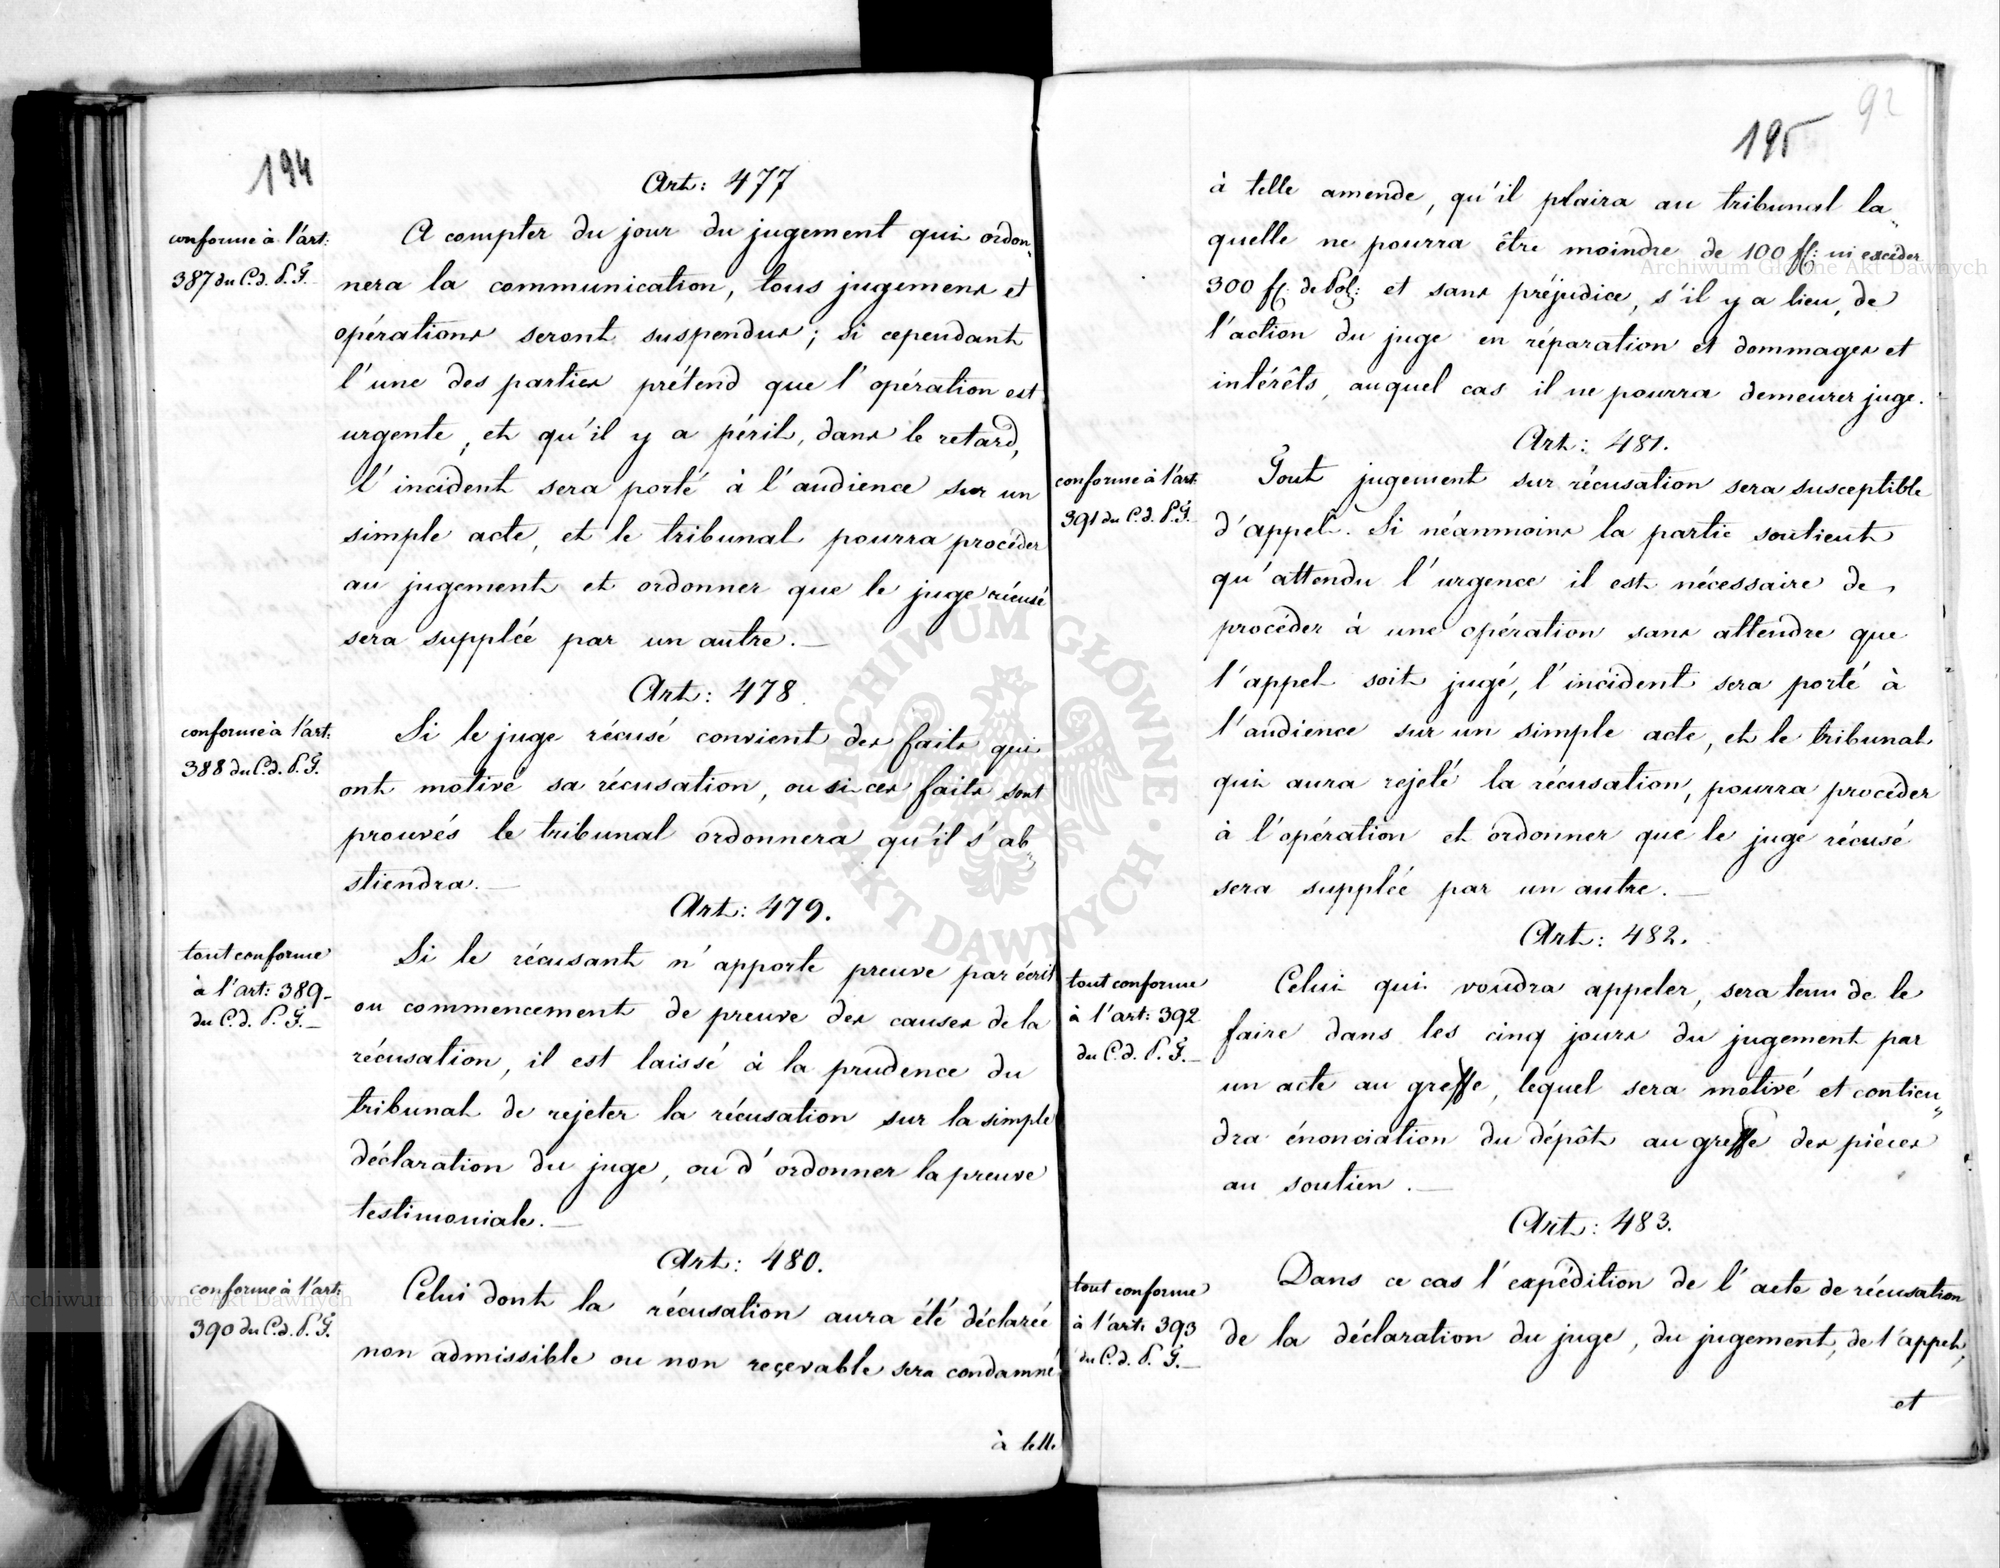 194
Art: 477
conforme à l'art:
387 du C. d. P. F.
A compter du jour du jugement qui ordon„
nera la communication, tous jugemens et
opérations seront suspendus; si cependant
l'une des parties prétend que l'opération est
urgente, et qu'il y a péril, dans le retard,
l'incident sera porté à l'audience sur un
simple acte, et le tribunal pourra procéder
au jugement et ordonner que le juge récusé
sera suppléé par un autre. —
Art: 478.
conforme à l'art:
388 du C. d. P. F.
Si le juge récusé convient des faits qui
ont motivé sa récusation, ou si ces faits sont
prouvés le tribunal ordonnera qu'il s'ab„
stiendra. —
Art: 479.
tout conforme
à l'art: 389
du C. d. P. F. —
Si le récusant n'apporte preuve par écrit
ou commencement de preuve des causes de la
récusation, il est laissé à la prudence du
tribunal de rejeter la récusation sur la simple
déclaration du juge, ou d'ordonner la preuve
testimoniale. —
Art: 480.
conforme à l'art:
390 du C. d. P. F.
Celui dont la récusation aura été déclarée
non admissible ou non reçevable sera condamné
à telle
92
195
à telle amende, qu'il plaira au tribunal la„
quelle ne pourra être moindre de 100 fl: ni excéder
300 fl. de Pol: et sans préjudice, s'il y a lieu, de
l'action du juge en réparation et dommages et
intérêts, auquel cas il ne pourra demeurer juge.
Art: 481.
conforme à l'art:
391 du C. d. P. F.
Tout jugement sur récusation sera susceptible
d'appel. Si néanmoins la partie soutient
qu'attendu l'urgence il est nécessaire de
procéder à une opération sans attendre que
l'appel soit jugé, l'incident sera porté à
l'audience sur un simple acte, et le tribunal
qui aura rejeté la récusation, pourra procéder
à l'opération et ordonner que le juge récusé
sera suppléé par un autre. —
Art: 482.
tout conforme
à l'art: 392
du C. d. P. F. —
Celui qui voudra appeler, sera tenu de le
faire dans les cinq jours du jugement par
un acte au greffe, lequel sera motivé et contien„
dra énonciation du dépôt au greffe des pièces
au soutien. —
Art: 483.
tout conforme
à l'art: 393
du C. d. P. F. —
Dans ce cas l'expédition de l'acte de récusation
de la déclaration du juge, du jugement, de l'appel,
et
ARCHIWUM GŁÓWNE · AKT DAWNYCH ·
Archiwum Główne Akt Dawnych
Archiwum Główne Akt Dawnych